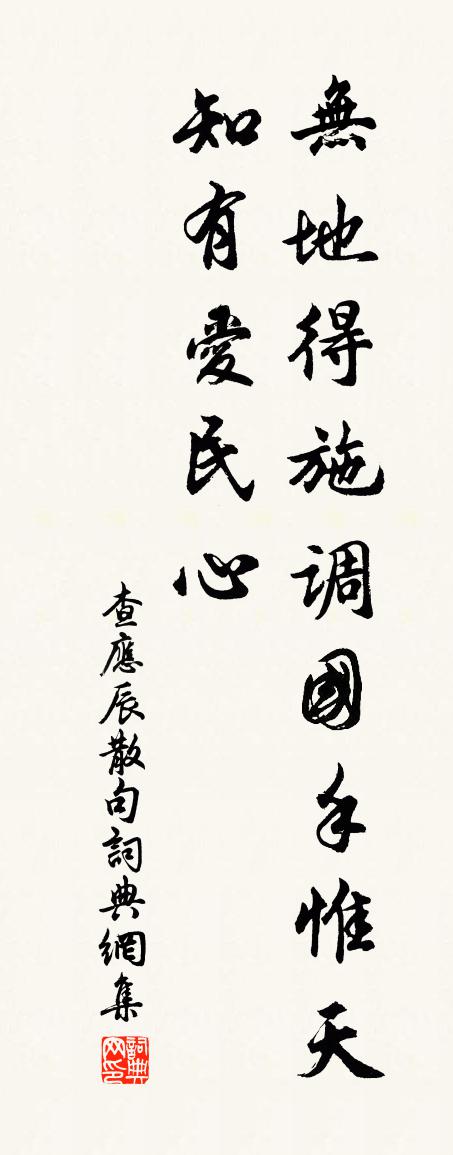 無地得施調國手惟天
知有愛民心
查應辰散句詞典網集
詞典网印